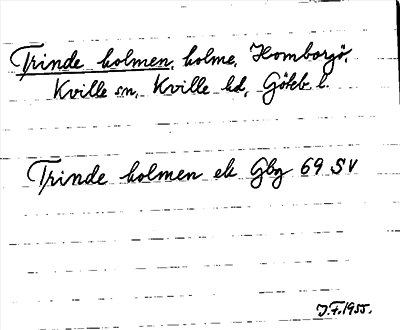 Trinde holmen, holme, Homborgö,
Kville sn, Kville hd, Göteb. l.
Trinde holmen ek Gbg 69 SV
J.F. 1955.